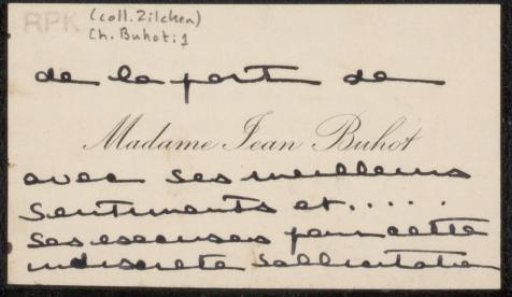 RPK (coll. Zilcken)
Ch. Buhot: 1
de la part de
Madame Jean Buhot
avec ses meilleurs
sentiments et.....
ses excuses pour cette
indiscrète sollicitation